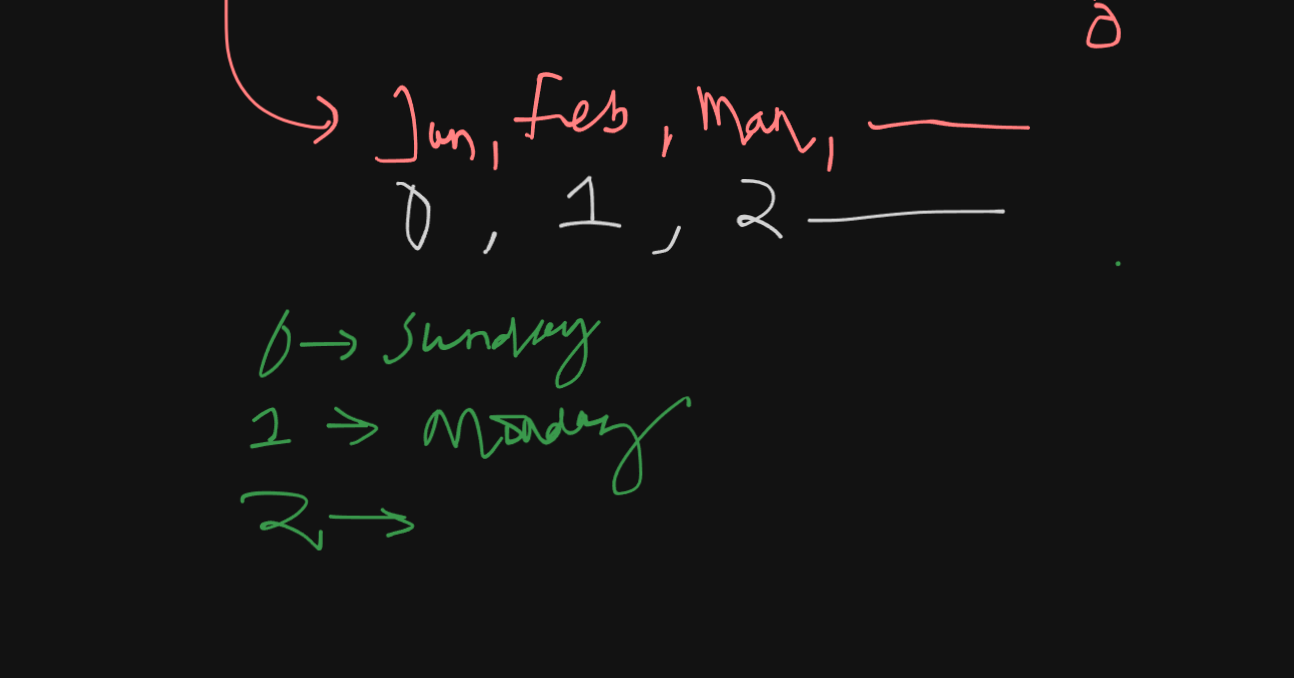 0
Jan, Feb, Mar,
0, 1, 2
0 → Sunday
1 → Monday
2 →